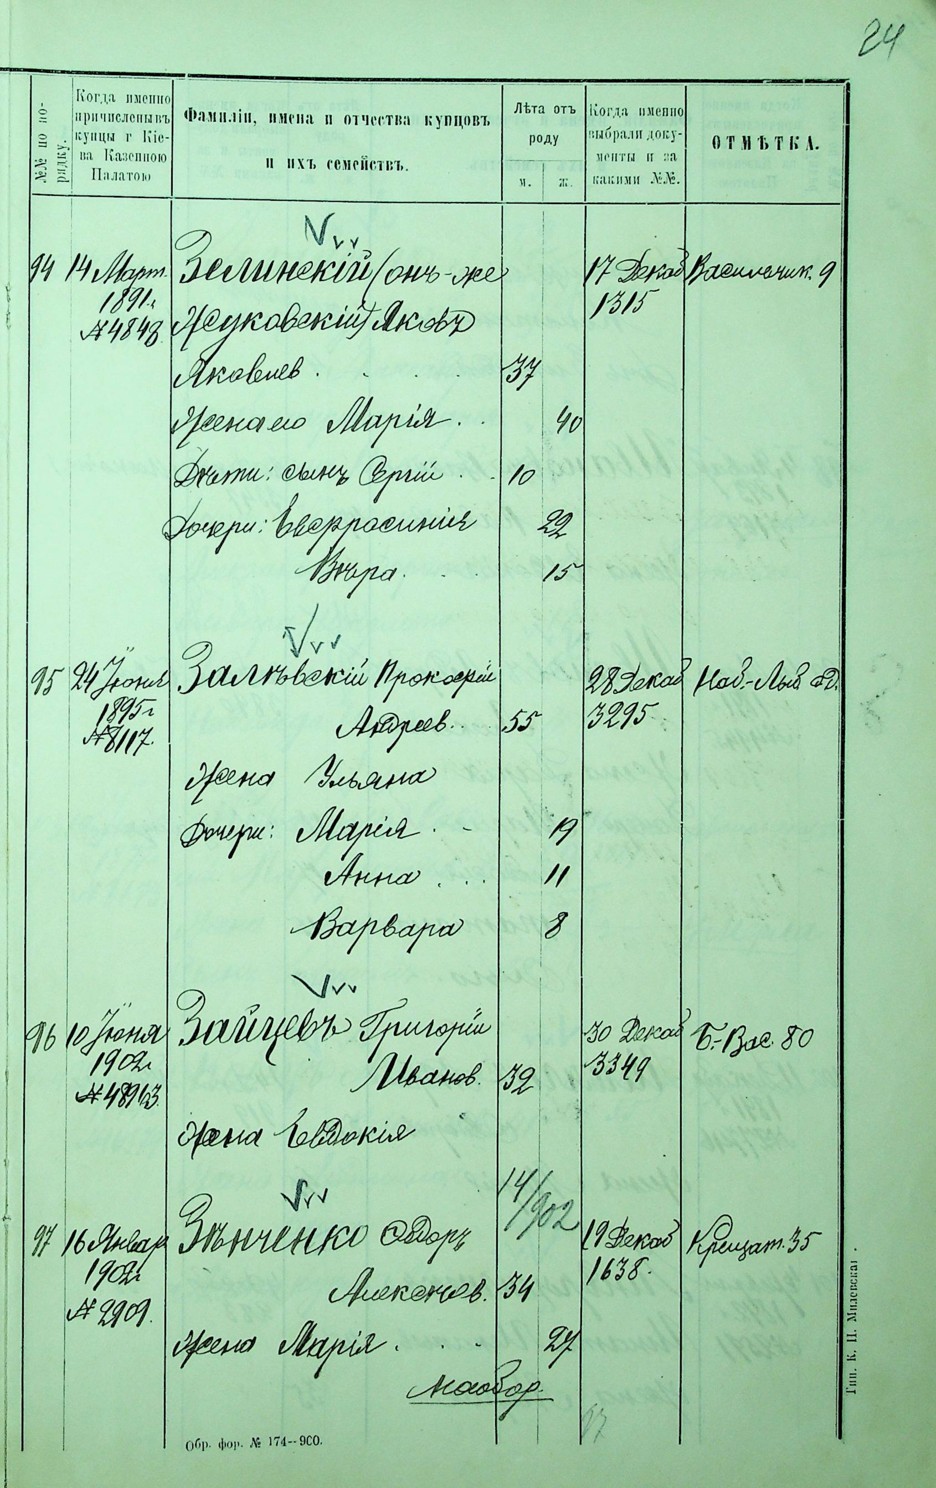 24
№№ по по-
рядку.
Когда именно
причислены въ
купцы г Кіе-
ва Казенною
Палатою
Фамиліи, имена и отчества купцовъ
и ихъ семействъ.
Лѣта отъ
роду
м. ж.
Когда именно
выбрали доку-
менты и за
какими №№.
ОТМѢТКА.
94 14 Март. Зелинскій (онъ-же 17 Декаб Васильчик. 9
1891г 1315
№4848 Жуковскій) Яковъ
Яковлев 37
Жена его Марія 40
Дѣти: сынъ Сергій 10
Дочери: Евфросинія 22
Вѣра 15
95 24 Іюня Залѣвскій Прокофій 28 Декаб Наб.-Лыб. д.
1895г Андреев. 55 3295
№8117.
Жена Ульяна
Дочери: Марія 19
Анна 11
Варвара 8
96 10 Іюня Зайцевъ Григорій 30 Декаб Б.-Вас. 80
1902г Иванов. 32 3349
№48963
Жена Евдокія
14/902
97 16 Январ Зѣнченко Ѳедоръ 19 Декаб Крещат. 35
1902г Алексѣев. 34 1638.
№2909.
Жена Марія 27
наобор.
Обр. фор. № 174--900.
Тип. К. Н. Милевскаг.